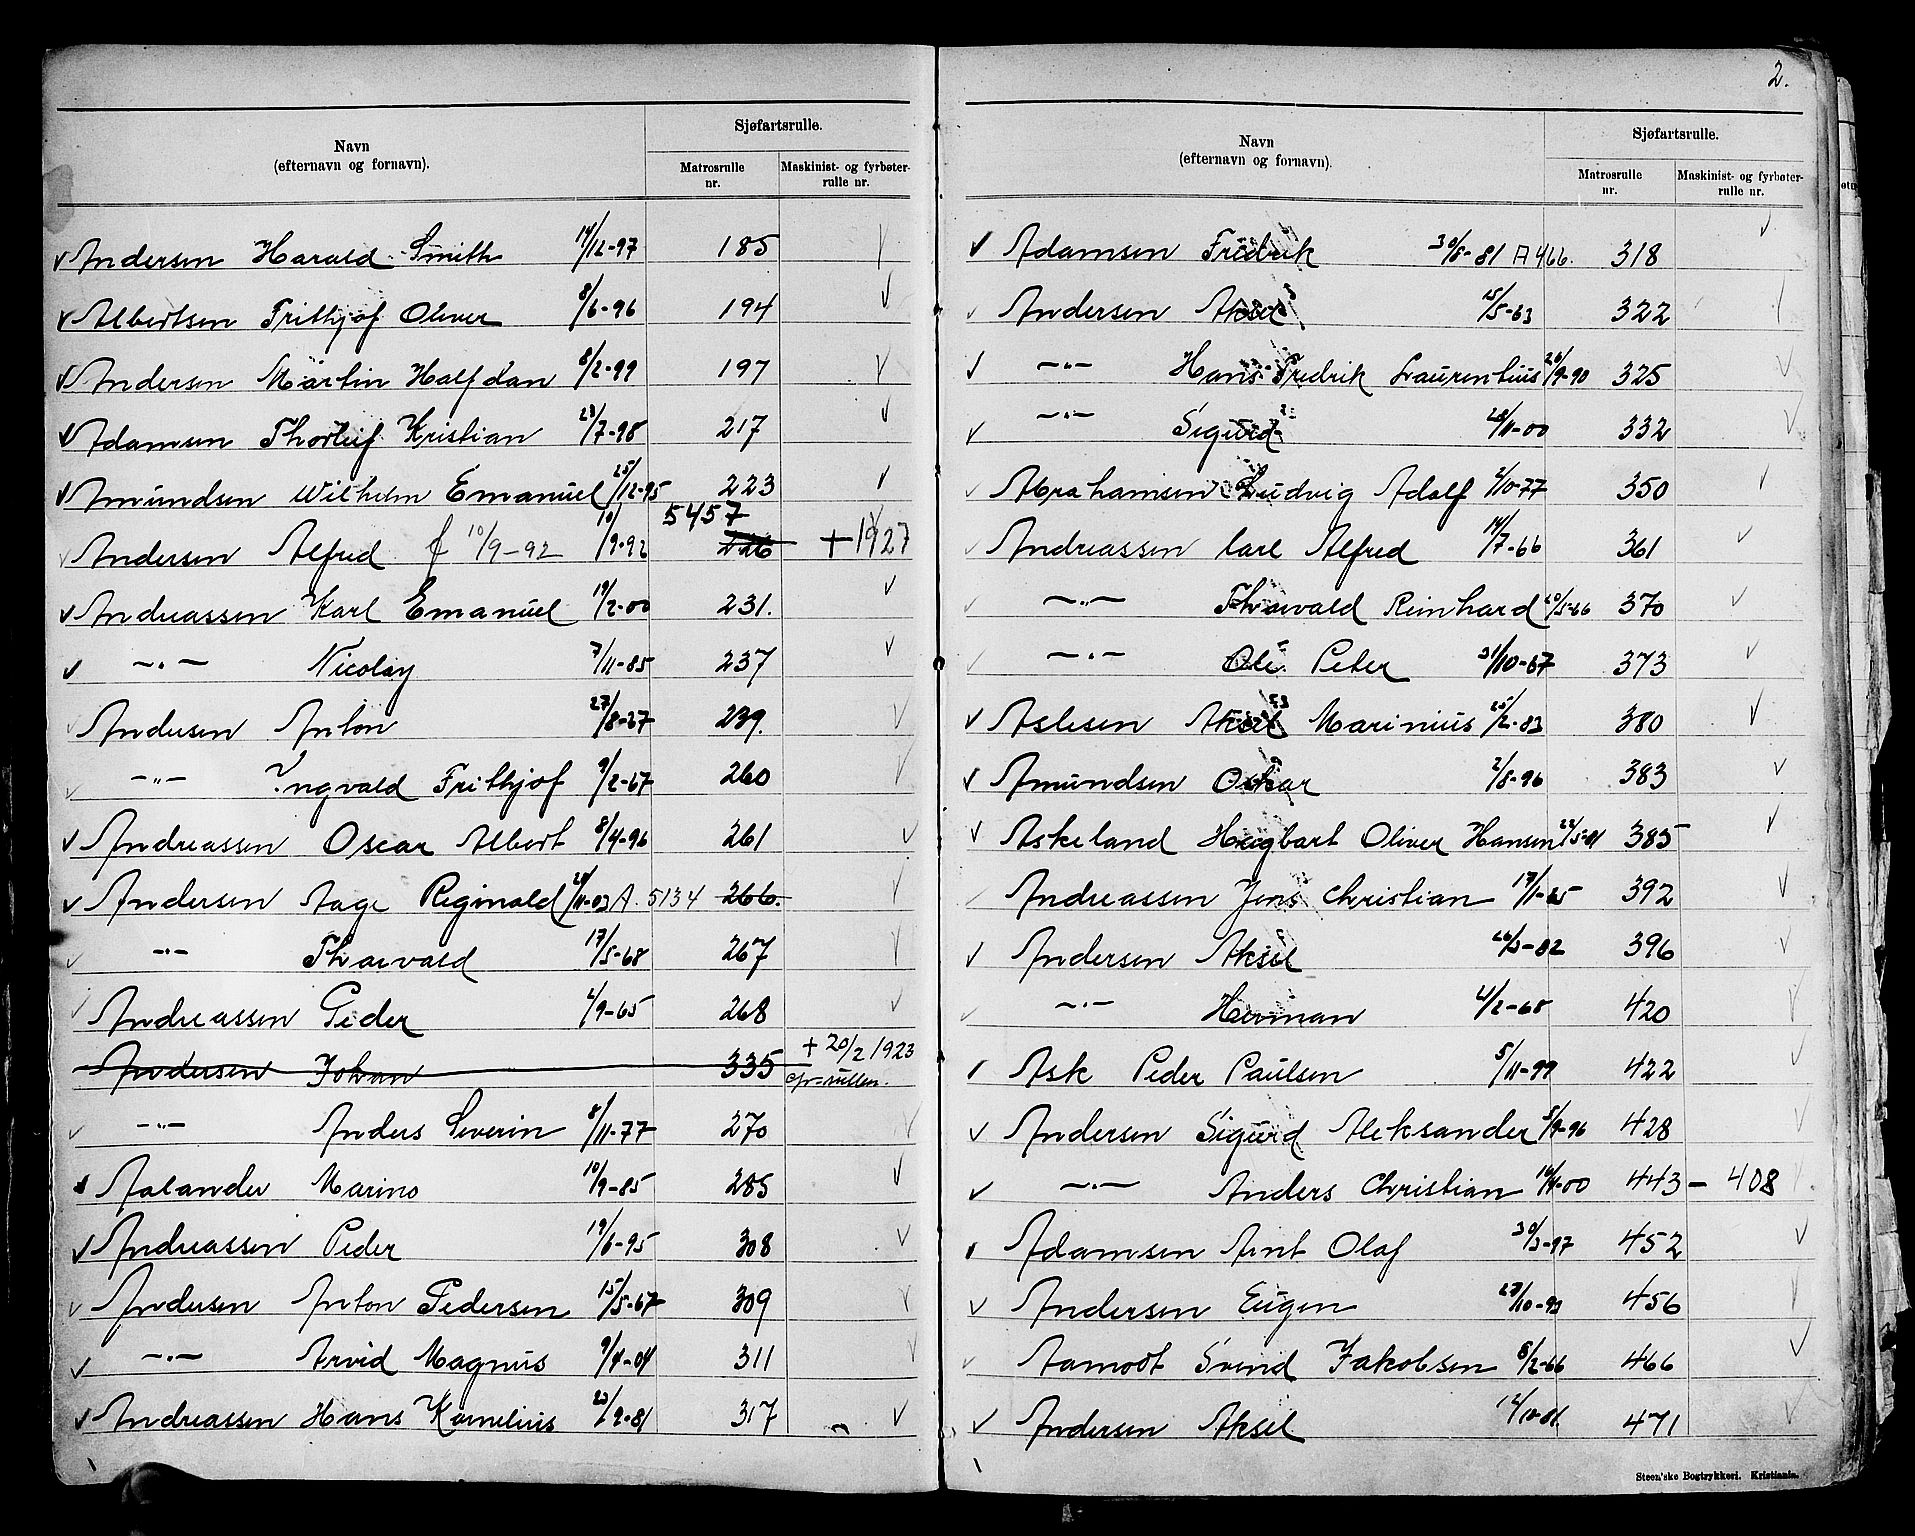 Navn
(efternavn og fornavn).
Sjøfartsrulle.
Matrosrulle
nr.
Maskinist- og fyrbøter-
rulle nr.
Andersen Harald Smith 14/12-97 185
Albertsen Frithjof Oliver 8/6-96 194
Andersen Martin Halfdan 8/2-99 197
Adamsen Thorleif Kristian 23/7-98 217
Amundsen Wilhelm Emanuel 25/12-95 223
5457
Andersen Alfred f 10/9-92 10/9-92 226 +1927
Andreassen Karl Emanuel 19/2-00 231.
—"— Nicolay 7/11-85 237
Andersen Anton 27/8-67 239.
—"— Yngvald Frithjof 9/2-67 260
Andreassen Oscar Albert 8/4-96 261
Andersen Aage Reginald /11-03 A. 5134 266.
—"— Thorvald 17/5-68 267
Andreassen Peder /9-65 268
Andersen Johan 335 + 20/2 1923
-rullen.
—"— Anders Severin 8/11-77 270
Aalander Marino 10/9-85 285
Andreassen Peder 19/6-95 308
Andersen Anton Pedersen 15/5-67 309
—"— Arvid Magnus 9/4-04 311
Andreassen Hans Kornelius 23/2-81 317
2.
Navn
(efternavn og fornavn).
Sjøfartsrulle.
Matrosrulle
nr.
Maskinist- og fyrbøter-
rulle nr.
Adamsen Fredrik 30/8-81 A466. 318
Andersen Aksel 15/5-63 322
—"— Hans Fredrik Laurentius 20/9-90 325
—"— Sigurd /11-00 332
Abrahamsen Ludvig Adolf 2/10-77 350
Andreassen Carl Alfred 14/7-66 361
—"— Thorvald Reinhard 20/5-66 370
—"— Ole Peter 31/10-67 373
Aslesen Aksel Marinius 25/2-83 380
Amundsen Oskar 2/8-96 383
Askeland Hagbart Oliver Hansen 22/5-81 385
Andreassen Jens Christian 17/1-65 392
Andersen Aksel 26/3-82 396
—"— Herman 4/2-68 420
Ask Peder Paulsen 5/11-99 422
Andersen Sigurd Aleksander 5/9-96 428
—"— Anders Christian 443 - 408
Adamsen Arnt Olaf 30/3-97 452
Andersen Eugen 27/10-93 456
Aamodt Svend Jakobsen 8/2-66 466
Andersen Aksel 12/10-81 471
Steen'ske Bogtrykkeri. Kristiania.